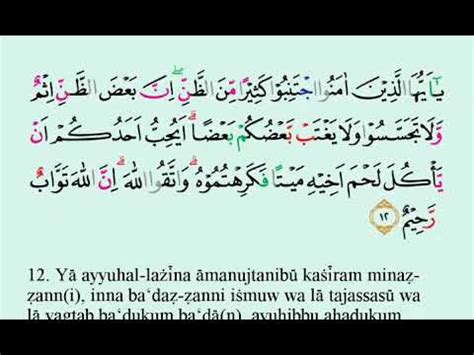 يٰٓاَيُّهَا الَّذِيْنَ اٰمَنُوا اجْتَنِبُوْا كَثِيْرًا مِّنَ الظَّنِّۖ اِنَّ بَعْضَ الظَّنِّ اِثْمٌ
وَّلَا تَجَسَّسُوْا وَلَا يَغْتَبْ بَّعْضُكُمْ بَعْضًاۗ اَيُحِبُّ اَحَدُكُمْ اَنْ
يَّأْكُلَ لَحْمَ اَخِيْهِ مَيْتًا فَكَرِهْتُمُوْهُۗ وَاتَّقُوا اللّٰهَۗ اِنَّ اللّٰهَ تَوَّابٌ
رَّحِيْمٌ ١٢
12. Yā ayyuhal-lażīna āmanujtanibū kaṡīram minaẓ-
ẓann(i), inna ba‘daẓ-ẓanni iṡmuw wa lā tajassasū wa
lā yagtab ba‘ḍukum ba‘ḍā(n), ayuḥibbu aḥadukum